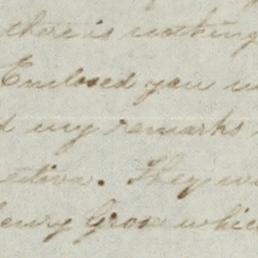 there is nothing
Enclosed you w
d my remarks
ective. They w
Henry Grove whic